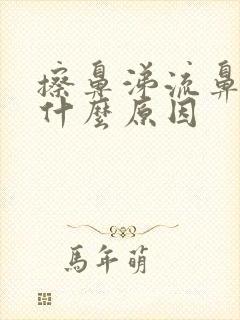 擦鼻涕流鼻
什麼原因
馬年萌